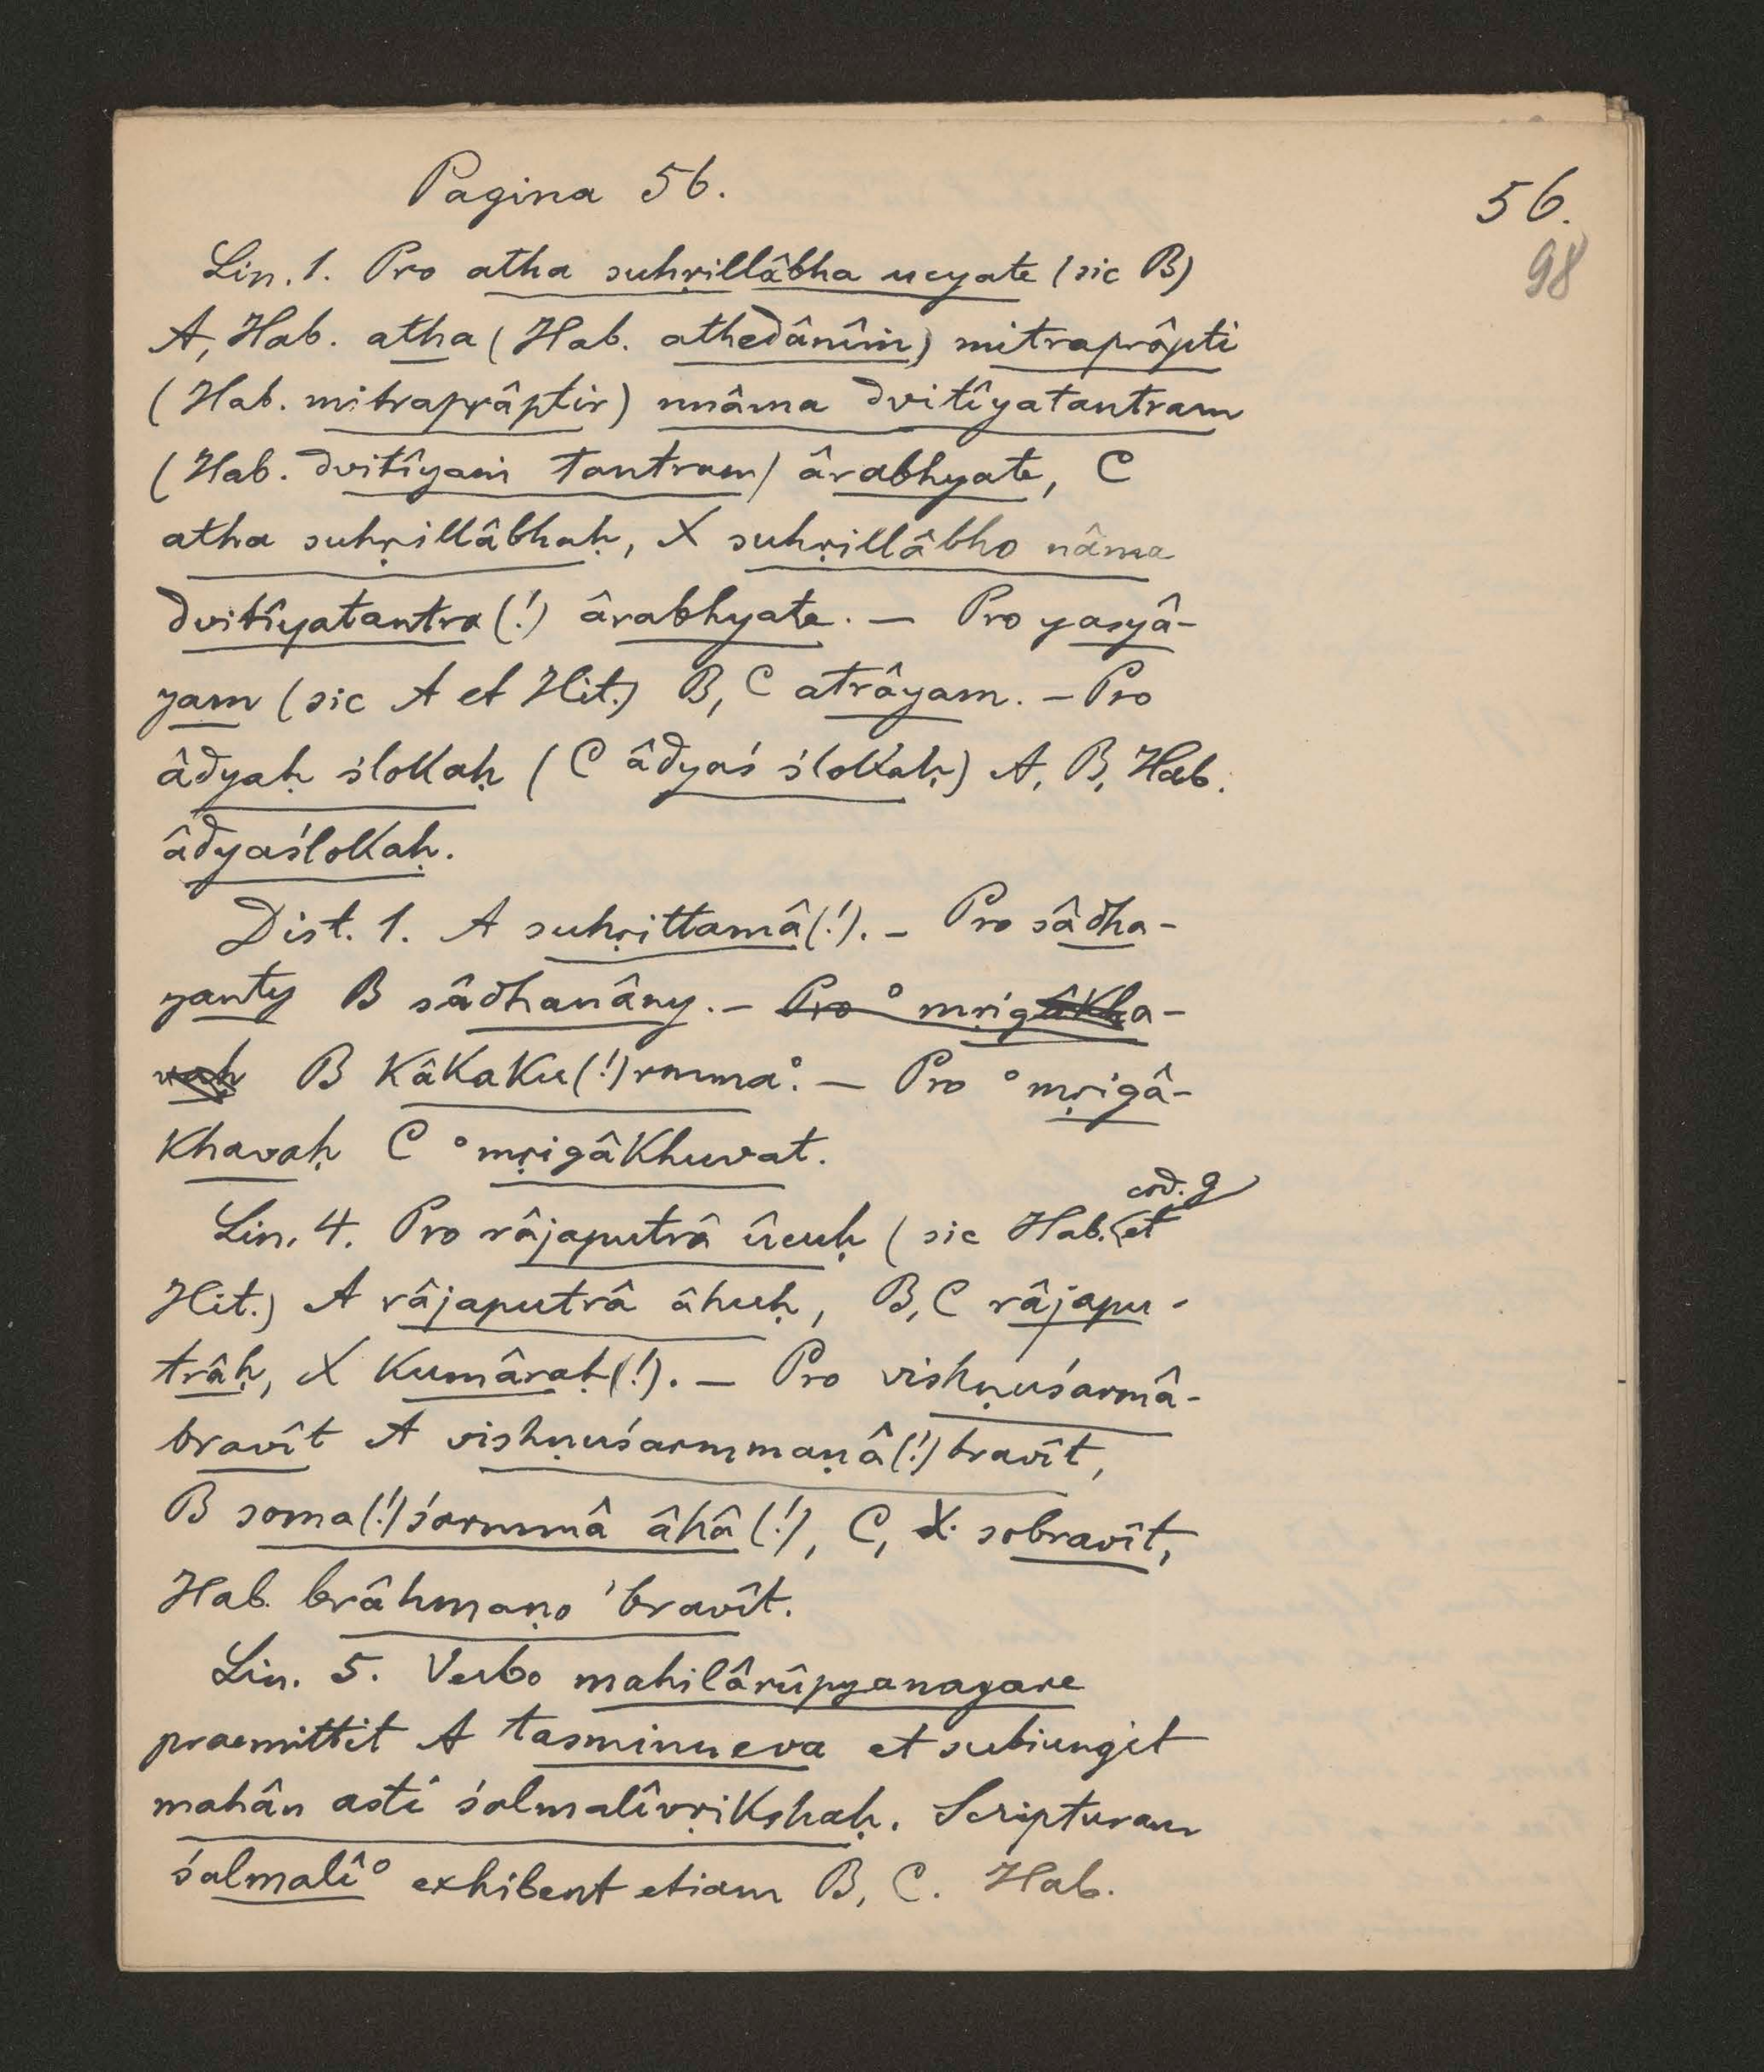 Pagina 56.
56.
98
Lin. 1. Pro atha suhṛillâbha ucyate (sic B)
A, Hab. atha (Hab. athedânîṁ) mitraprâpti
(Hab. mitraprâptir) nnâma dvitîyatantram
(Hab. dvitîyaṁ tantram) ârabhyate, C
atha suhṛillâbhaḥ, X suhṛillâbho nâma
dvitîyatantra(!) ârabhyate. — Pro yasyâ-
yam (sic A et Hit.) B, C atrâyam. — Pro
âdyaḥ ślokaḥ (C âdyaś ślokaḥ) A, B, Hab.
âdyaślokaḥ.
Dist. 1. A suhṛittamâ(!). — Pro sâdha-
yanty B sâdhanâny. — Pro °mṛigâkha-
vaḥ B kâkaku(!)rmma°. — Pro °mṛigâ-
khavaḥ C °mṛigâkhuvat.
cod. g
Lin. 4. Pro râjaputrâ ûcuḥ (sic Hab. et
Hit.) A râjaputrâ âhuḥ, B, C râjapu-
trâḥ, X kumâraḥ(!). — Pro vishṇuśarmâ-
bravît A vishṇuśarmmaṇâ(!)bravît,
B soma(!)śarmmâ âhâ(!), C, X sobravît,
Hab. brâhmaṇo 'bravît.
Lin. 5. Verbo mahilârûpyanagare
praemittit A tasminneva et subiungit
mahân asti śalmalîvṛikshaḥ. Scripturam
śalmalî° exhibent etiam B, C. Hab.